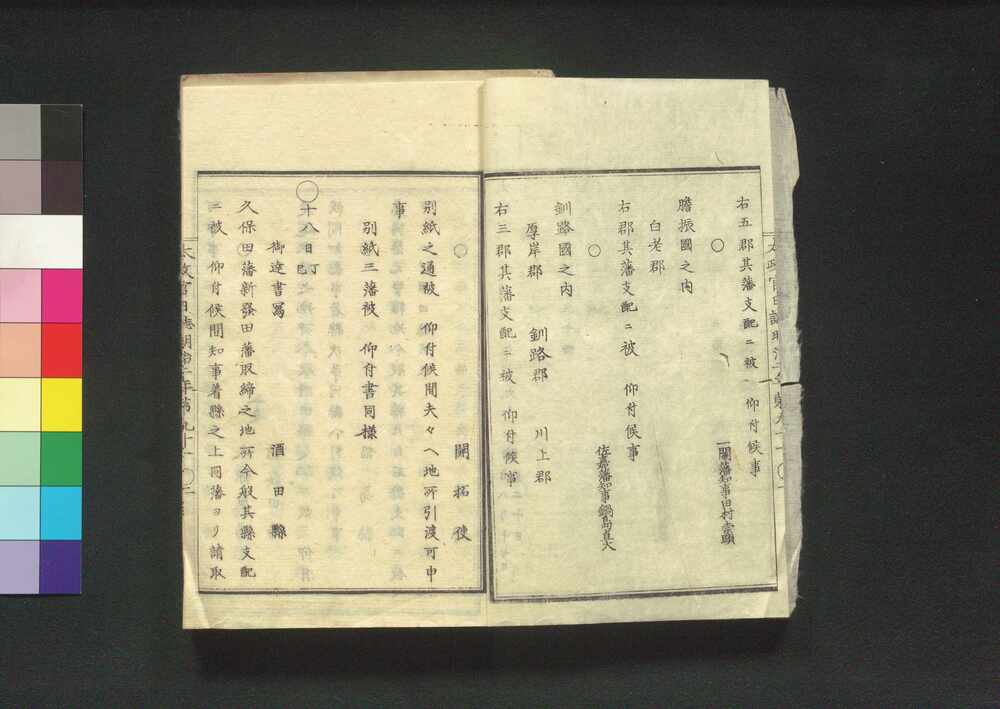 右五郡其藩支配ニ被　仰付候事
〇
一關藩知事田村崇顯
膽振國之内
白老郡
右郡其藩支配ニ被　仰付候事
〇
佐嘉藩知事鍋島直大
釧路國之内
厚岸郡　釧路郡　川上郡
右三郡其藩支配ニ被　仰付候事
〇
開拓使
別紙之通被　仰付候間夫々へ地所引渡可申
事
別紙三藩被　仰付書同樣
〇十八日丁巳
御達書寫
酒田縣
久保田藩新發田藩取締之地所今般其縣支配
ニ被　仰付候間知事着縣之上同藩ヨリ請取
太政官日誌明治二年第九十一